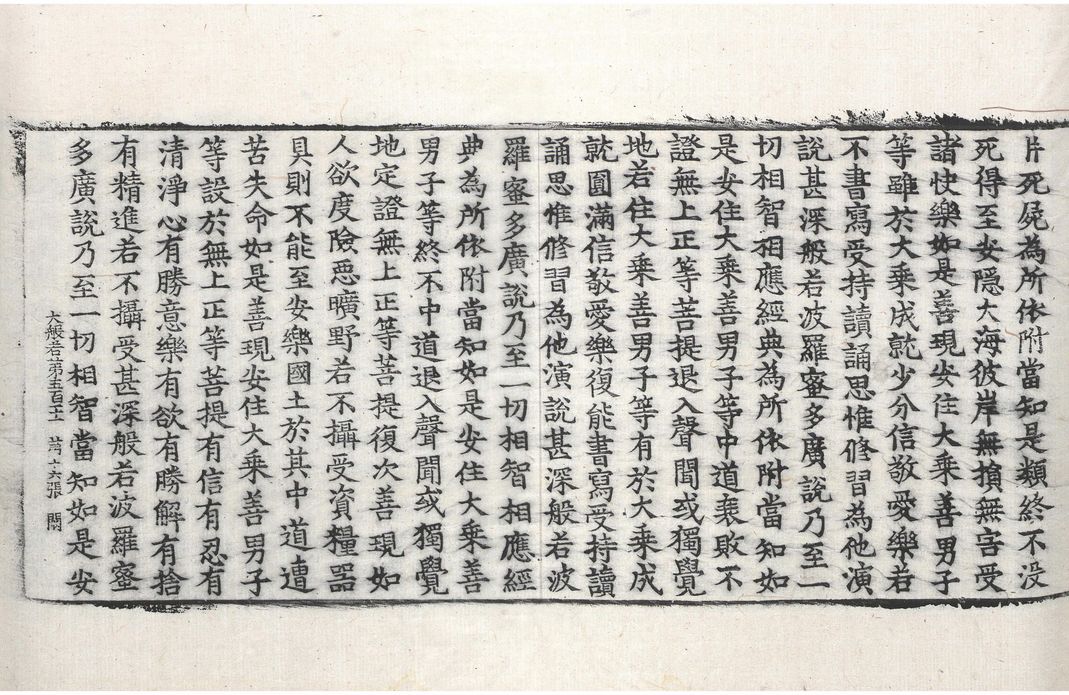 片死屍為所依附當知是類終不没
死得至安隱大海彼岸無損無害受
諸快樂如是善現安住大乘善男子
等雖於大乘成就少分信敬愛樂若
不書寫受持讀誦思惟修習為他演
說甚深般若波羅蜜多廣說乃至一
切相智相應經典為所依附當知如
是安住大乘善男子等中道衰敗不
證無上正等菩提退入聲聞或獨覺
地若住大乘善男子等有於大乘成
就圓滿信敬愛樂復能書寫受持讀
誦思惟修習為他演說甚深般若波
羅蜜多廣說乃至一切相智相應經
典為所依附當知如是安住大乘善
男子等終不中道退入聲聞或獨覺
地定證無上正等菩提復次善現如
人欲度險惡曠野若不攝受資糧器
具則不能至安樂國土於其中道遭
苦失命如是善現安住大乘善男子
等設於無上正等菩提有信有忍有
清淨心有勝意樂有欲有勝解有捨
有精進若不攝受甚深般若波羅蜜
多廣說乃至一切相智當知如是安
大般若第五百 十六張